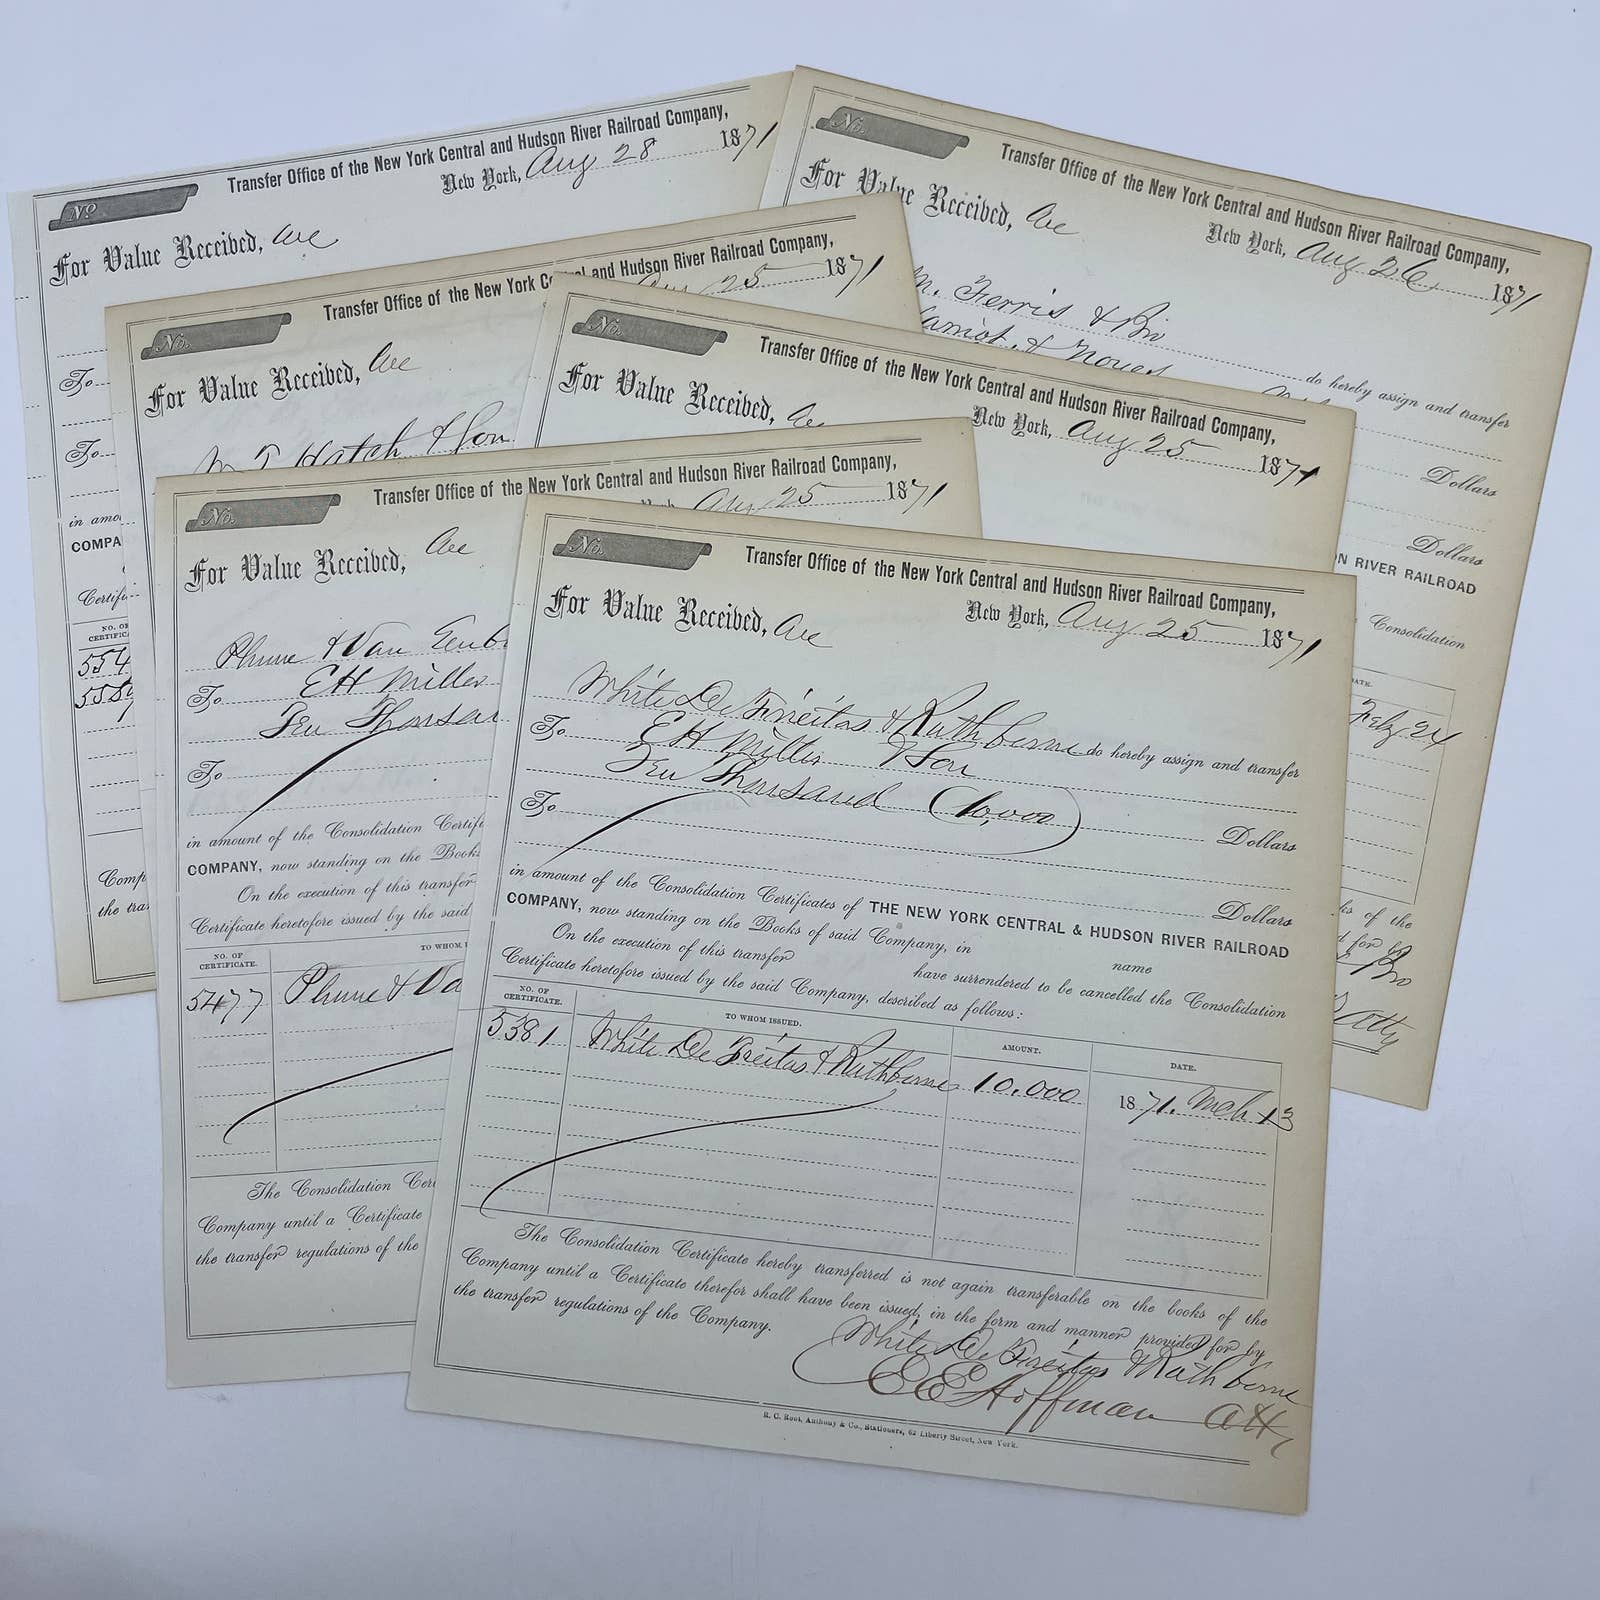 No.
Transfer Office of the New York Central and Hudson River Railroad Company,
New York, Aug 28 1871
For Value Received, We
To
To
in amo
COMPA
Certific
NO. OF
CERTIFICA
554
5589
Comp
the tra
No.
Transfer Office of the New York Central and Hudson River Railroad Company,
New York, Aug 26 1871
For Value Received, We
M. Ferris & Bro
& Noyes
do hereby assign and transfer
Dollars
Dollars
N RIVER RAILROAD
Consolidation
DATE.
Feby 24
ks of the
d for by
& Bro
Atty
No.
Transfer Office of the New York C and Hudson River Railroad Company,
Aug 25 1871
For Value Received, We
Hatch & Son
No.
Transfer Office of the New York Central and Hudson River Railroad Company,
New York, Aug 25 1871
For Value Received, We
No.
Transfer Office of the New York Central and Hudson River Railroad Company,
York, Aug 25 1871
For Value Received, We
& Van
To E H Miller
Ten Thousan
To
in amount of the Consolidation Certifi
COMPANY, now standing on the Books
On the execution of this transfer
Certificate heretofore issued by the said
NO. OF
CERTIFICATE.
TO WHOM I
5477 & Va
The Consolidation Cer
Company until a Certificate
the transfer regulations of the
No.
Transfer Office of the New York Central and Hudson River Railroad Company,
New York, Aug 25 1871
For Value Received, We
White De Freitas & Rathborne do hereby assign and transfer
To E H Miller & Son
Ten Thousand (10,000) Dollars
To
Dollars
in amount of the Consolidation Certificates of THE NEW YORK CENTRAL & HUDSON RIVER RAILROAD
COMPANY, now standing on the Books of said Company, in name
On the execution of this transfer have surrendered to be cancelled the Consolidation
Certificate heretofore issued by the said Company, described as follows:
NO. OF
CERTIFICATE.
TO WHOM ISSUED.
AMOUNT.
DATE.
5381 White De Freitas & Rathborne 10.000 1871. Mch 13
The Consolidation Certificate hereby transferred is not again transferable on the books of the
Company until a Certificate therefor shall have been issued, in the form and manner provided for by
the transfer regulations of the Company.
White De Freitas & Rathborne
E E Hoffman Atty
R. C. Root, Anthony & Co., Stationers, 62 Liberty Street, New York.